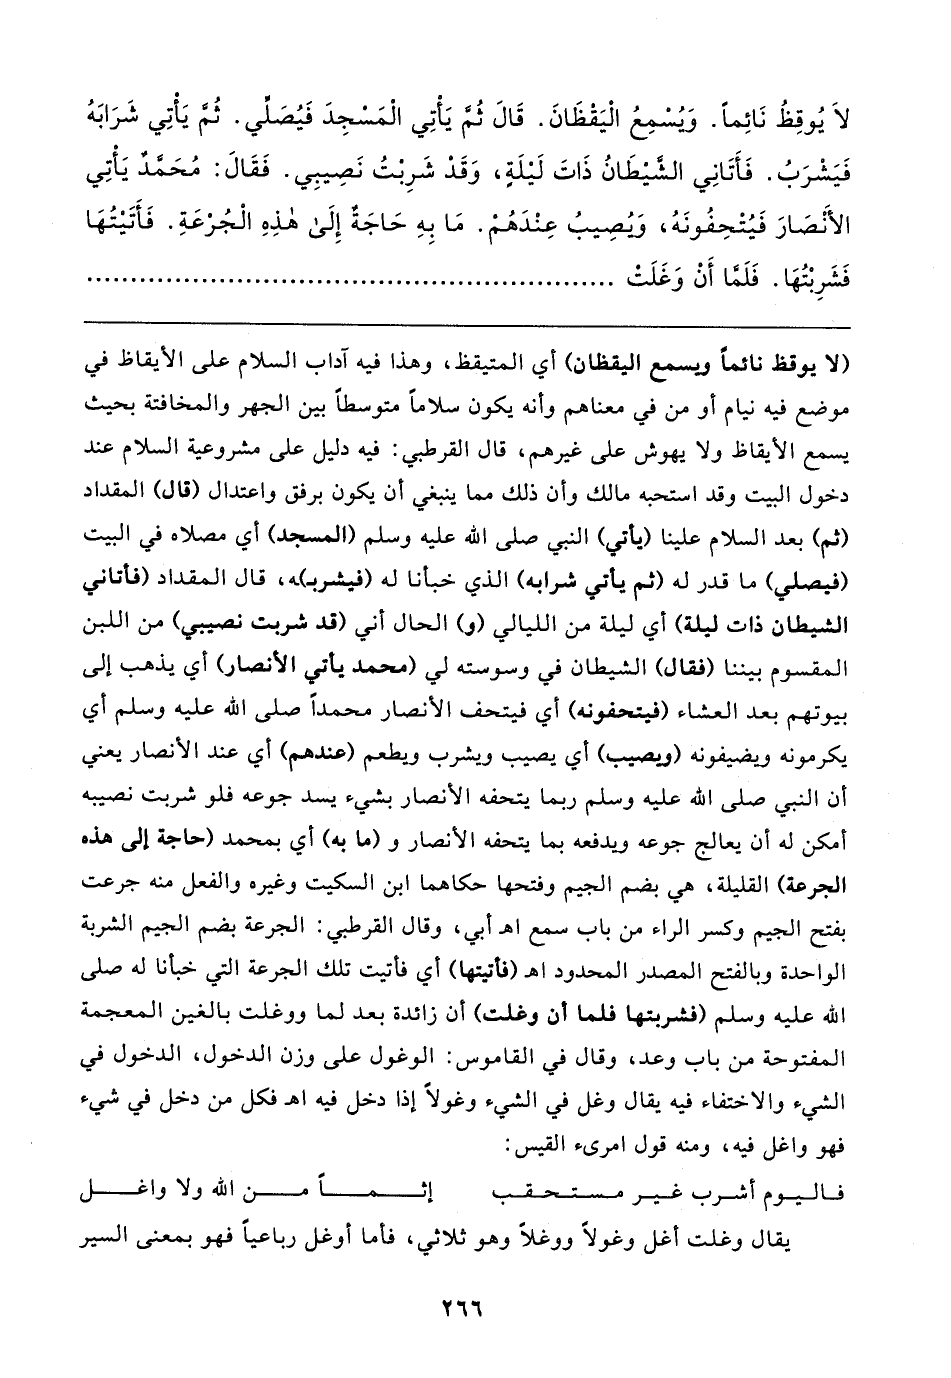 لاَ يُوقِظُ نَائِماً. وَيُسْمِعُ الْيَقْظَانَ. قَالَ ثُمَّ يَأْتِي الْمَسْجِدَ فَيُصَلِّي. ثُمَّ يَأْتِي شَرَابَهُ
فَيَشْرَبُ. فَأَتَانِي الشَّيْطَانُ ذَاتَ لَيْلَةٍ، وَقَدْ شَرِبْتُ نَصِيبِي. فَقَالَ: مُحَمَّدٌ يَأْتِي
الأَنْصَارَ فَيُتْحِفُونَهُ، وَيُصِيبُ عِنْدَهُمْ. مَا بِهِ حَاجَةٌ إِلَىٰ هٰذِهِ الْجُرْعَةِ. فَأَتَيْتُهَا
فَشَرِبْتُهَا. فَلَمَّا أَنْ وَغَلَتْ ............................................................
(لا يوقظ نائماً ويسمع اليقظان) أي المتيقظ، وهذا فيه آداب السلام على الأيقاظ في
موضع فيه نيام أو من في معناهم وأنه يكون سلاماً متوسطاً بين الجهر والمخافتة بحيث
يسمع الأيقاظ ولا يهوش على غيرهم، قال القرطبي: فيه دليل على مشروعية السلام عند
دخول البيت وقد استحبه مالك وأن ذلك مما ينبغي أن يكون برفق واعتدال (قال) المقداد
(ثم) بعد السلام علينا (يأتي) النبي صلى الله عليه وسلم (المسجد) أي مصلاه في البيت
(فيصلي) ما قدر له (ثم يأتي شرابه) الذي خبأنا له (فيشربـ)ـه، قال المقداد (فأتاني
الشيطان ذات ليلة) أي ليلة من الليالي (و) الحال أني (قد شربت نصيبي) من اللبن
المقسوم بيننا (فقال) الشيطان في وسوسته لي (محمد يأتي الأنصار) أي يذهب إلى
بيوتهم بعد العشاء (فيتحفونه) أي فيتحف الأنصار محمداً صلى الله عليه وسلم أي
يكرمونه ويضيفونه (ويصيب) أي يصيب ويشرب ويطعم (عندهم) أي عند الأنصار يعني
أن النبي صلى الله عليه وسلم ربما يتحفه الأنصار بشيء يسد جوعه فلو شربت نصيبه
أمكن له أن يعالج جوعه ويدفعه بما يتحفه الأنصار و (ما به) أي بمحمد (حاجة إلى هذه
الجرعة) القليلة، هي بضم الجيم وفتحها حكاهما ابن السكيت وغيره والفعل منه جرعت
بفتح الجيم وكسر الراء من باب سمع اهـ أبي، وقال القرطبي: الجرعة بضم الجيم الشربة
الواحدة وبالفتح المصدر المحدود اهـ (فأتيتها) أي فأتيت تلك الجرعة التي خبأنا له صلى
الله عليه وسلم (فشربتها فلما أن وغلت) أن زائدة بعد لما ووغلت بالغين المعجمة
المفتوحة من باب وعد، وقال في القاموس: الوغول على وزن الدخول، الدخول في
الشيء والاختفاء فيه يقال وغل في الشيء وغولاً إذا دخل فيه اهـ فكل من دخل في شيء
فهو واغل فيه، ومنه قول امرىء القيس:
فاليوم أشرب غير مستحقب إثماً من الله ولا واغل
يقال وغلت أغل وغولاً ووغلاً وهو ثلاثي، فأما أوغل رباعياً فهو بمعنى السير
٢٦٦